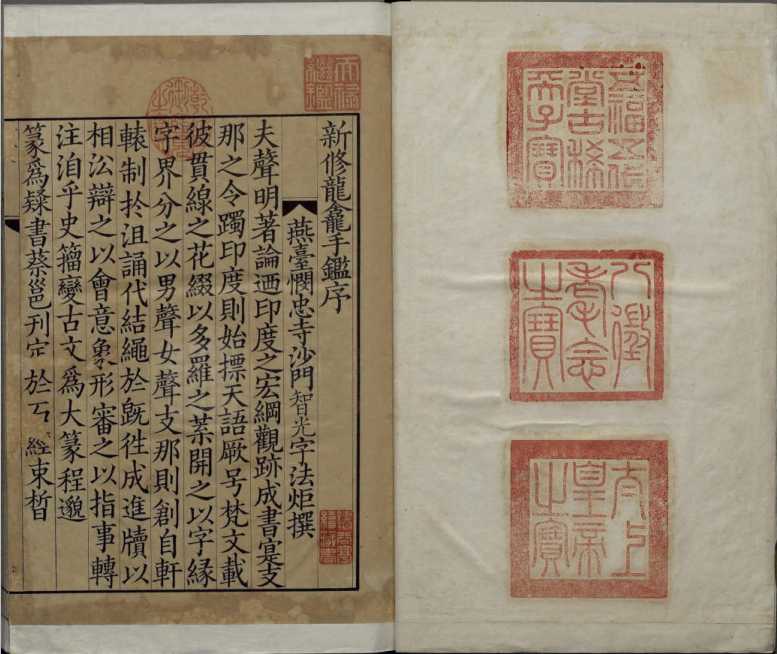 五福五代
堂古稀
天子寶
八徵
耄念
之寶
太上
皇帝
之寶
天祿
繼鑑
乾隆
御覽
之寶
新修龍龕手鑑序
燕臺憫忠寺沙門智光字法炬撰
夫聲明著論迺印度之宏綱觀跡成書寔支
那之令躅印度則始標天語厥号梵文載
彼貫線之花綴以多羅之葉開之以字緣
字界分之以男聲女聲支那則創自軒
轅制扵沮誦代結繩於既徃成進牘以
相沿辯之以會意象形審之以指事轉
注洎乎史籀變古文爲大篆程邈
篆爲隸書蔡邕刊定於石經束晳